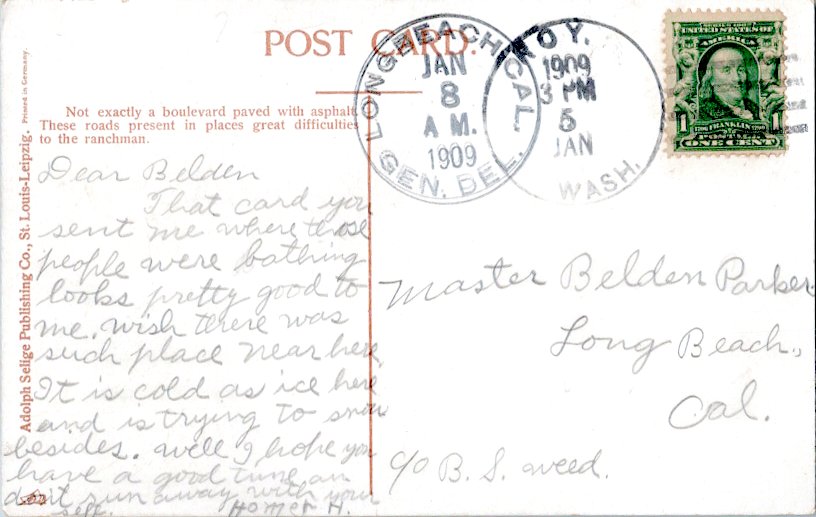 POST CARD.
Not exactly a boulevard paved with asphalt.
These roads present in places great difficulties
to the ranchman.
Adolph Selige Publishing Co., St. Louis-Leipzig. Printed in Germany.
LONG BEACH, CAL.
JAN
8
A M.
1909
GEN. DEL.
OY.
1909
3 PM
5
JAN
WASH.
SERIES 1902
UNITED STATES OF
AMERICA
1 FRANKLIN 1
POSTAGE
ONE CENT
Dear Belden
That card you
sent me where those
people were bathing
looks pretty good to
me. wish there was
such place near here
It is cold as ice here
and is trying to snow
besides. well I hope you
have a good time an
dont run away with your
self. Homer H.
Master Belden Parker
Long Beach,
Cal.
c/o B. S. weed.